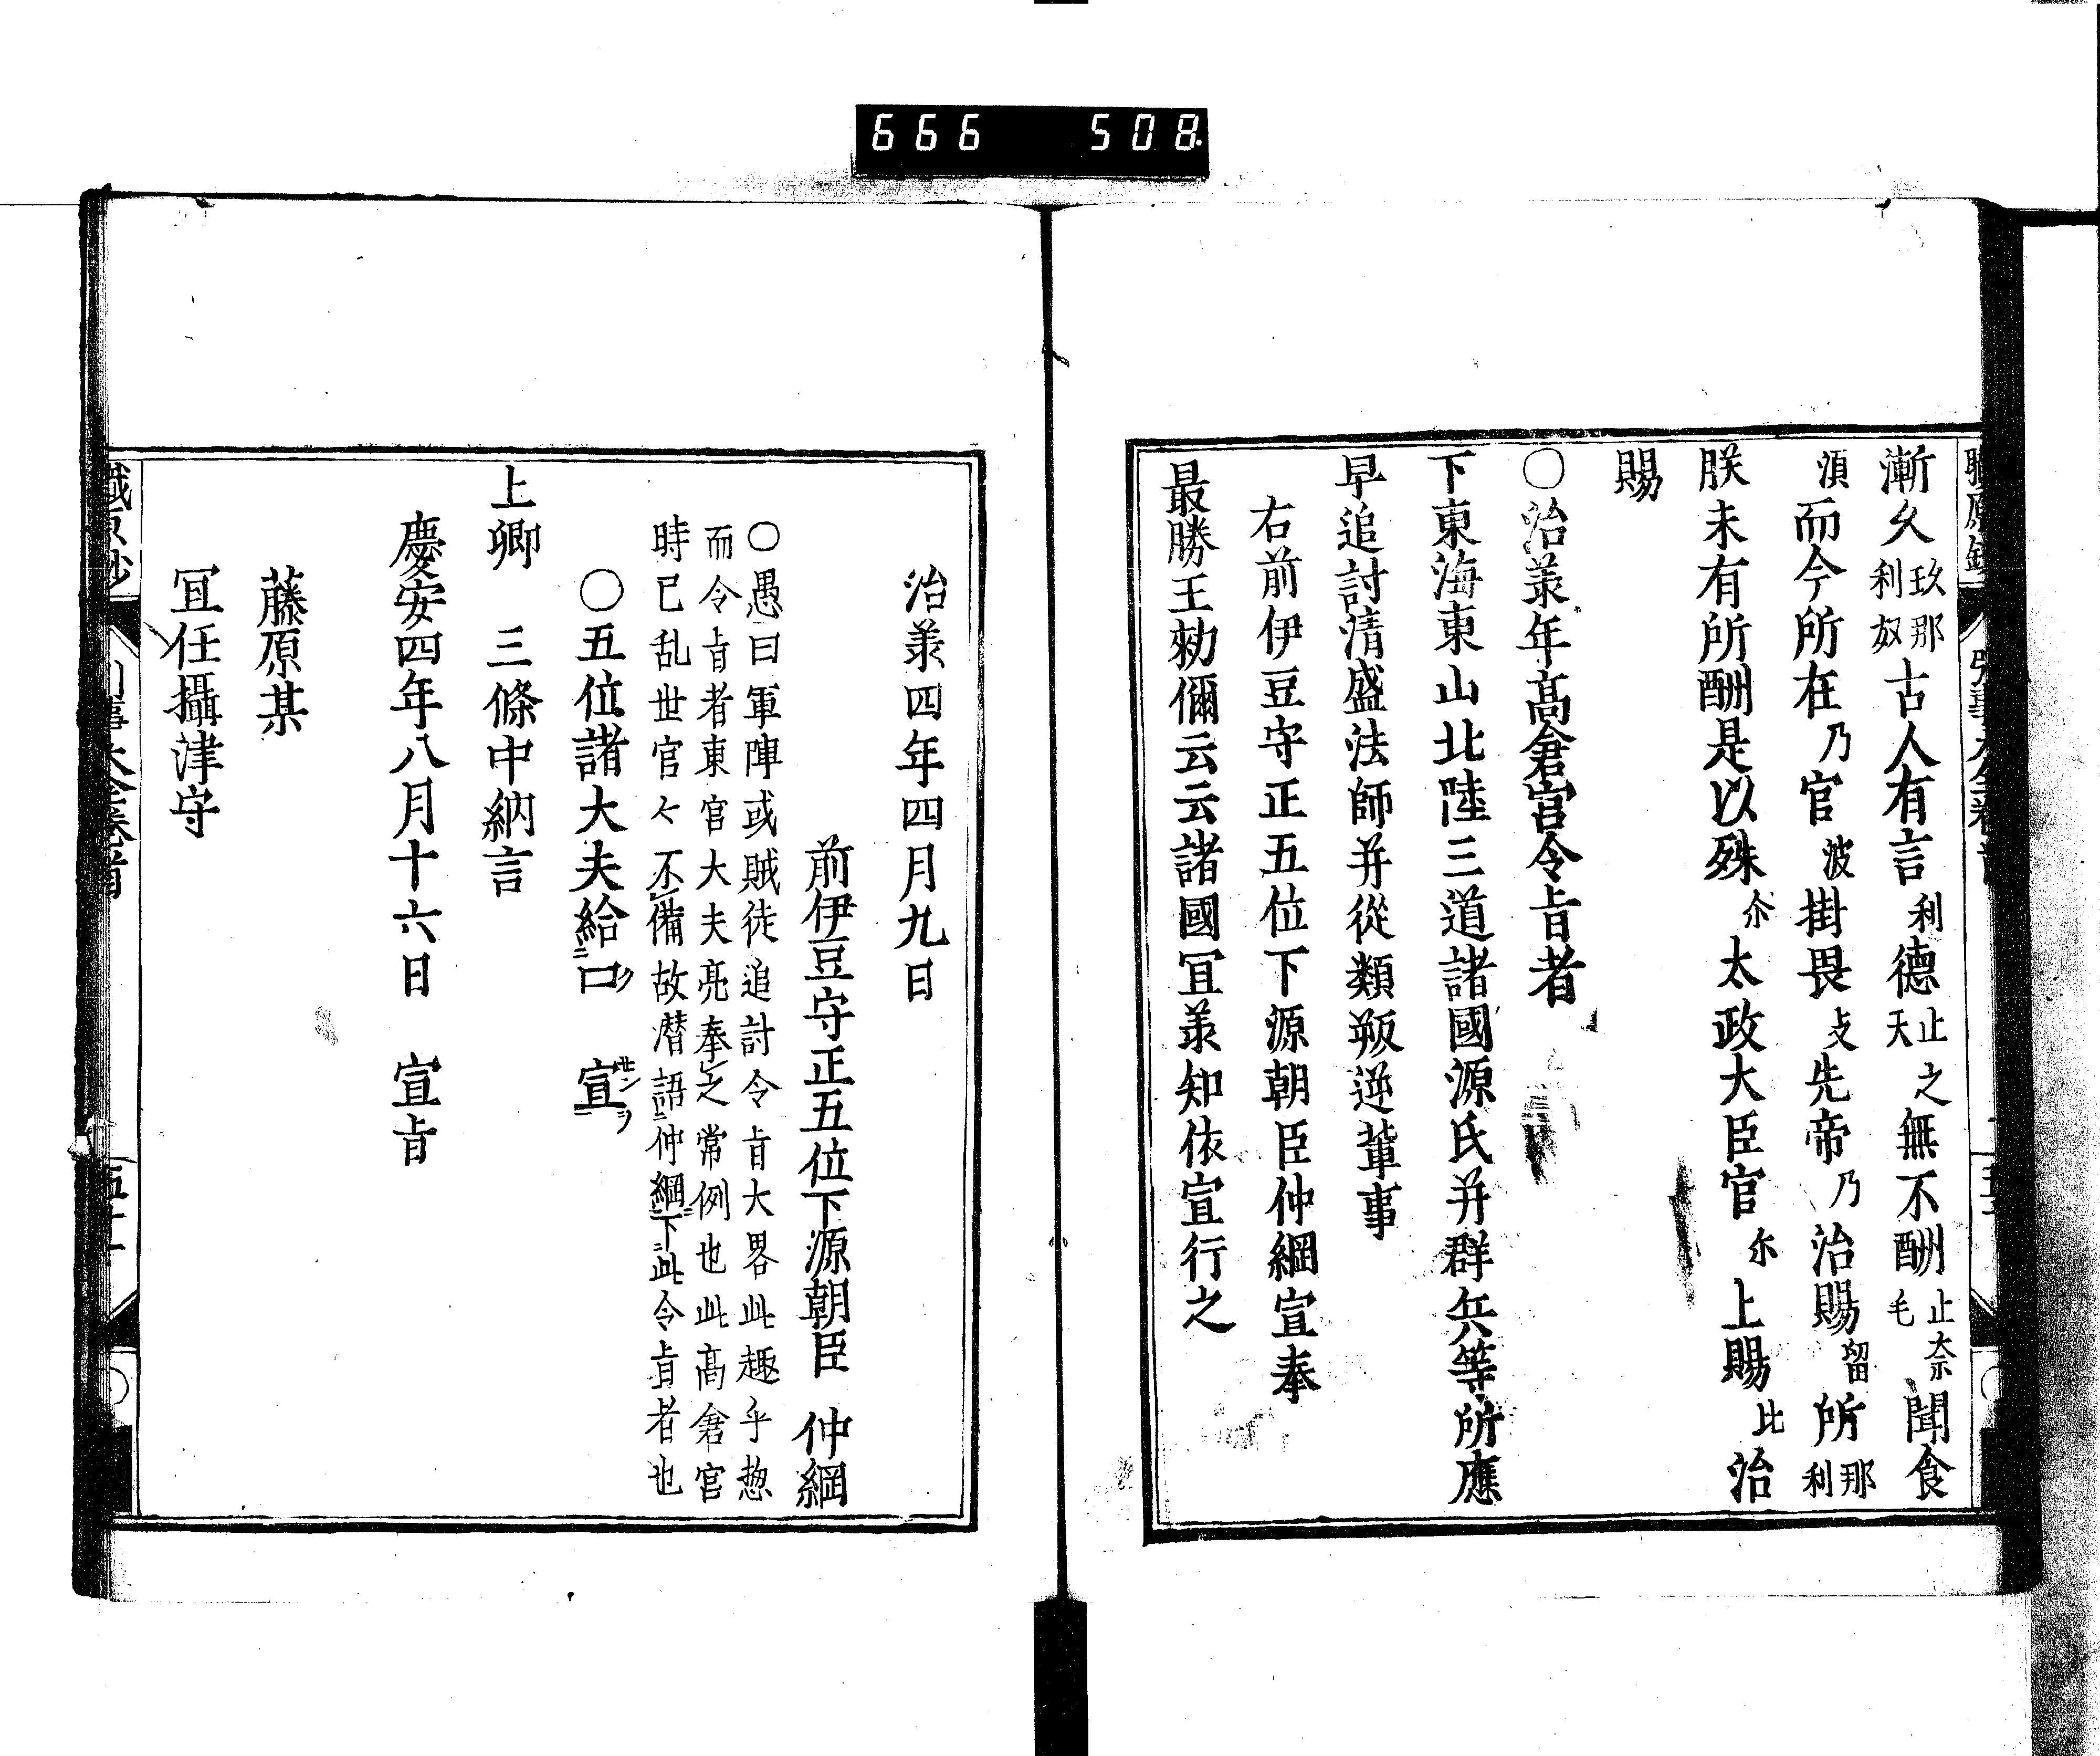 666 508
漸久玖那利奴古人有言利德止天之無不酬止奈毛聞食
湏而今所在乃官波掛畏攴先帝乃治賜留所那利
朕未有所酬是以殊尒太政大臣官尓上賜比治
賜
○治羕年高倉宮令㫖者
下東海東山北陸三道諸國源氏并群兵等所應
早追討清盛法師并從類叛逆輩事
右前伊豆守正五位下源朝臣仲綱宣奉
最勝王勑偁云云諸國冝羕知依宣行之
治羕四年四月九日
前伊豆守正五位下源朝臣 仲綱
○愚曰軍陣或賊徒追討令㫖大畧此趣乎惣
而令㫖者東官大夫亮奉之常例也此高倉宮
時已乱世官々不備故潜語ニ仲綱ニ下ニ此令㫖者也
○五位諸大夫給ニ口 宣ヲ
上卿 三條中納言
慶安四年八月十六日 宣㫖
藤原某
冝任攝津守